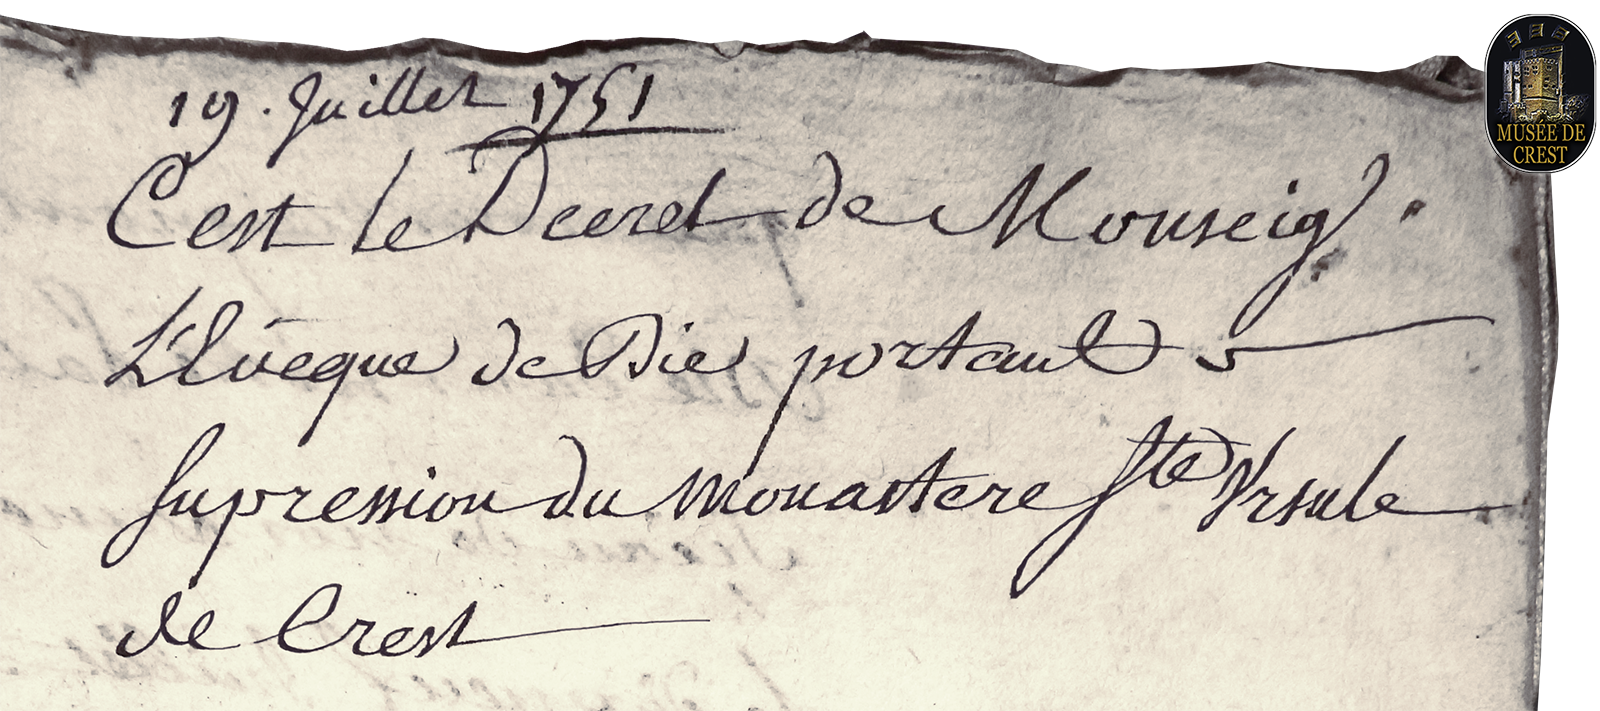 19. Juillet 1751
C'est le Decret de Monseigr.
L'Evêque de Die portant
Supression du Monastere Ste Ursule
de Crest
MUSÉE DE
CREST